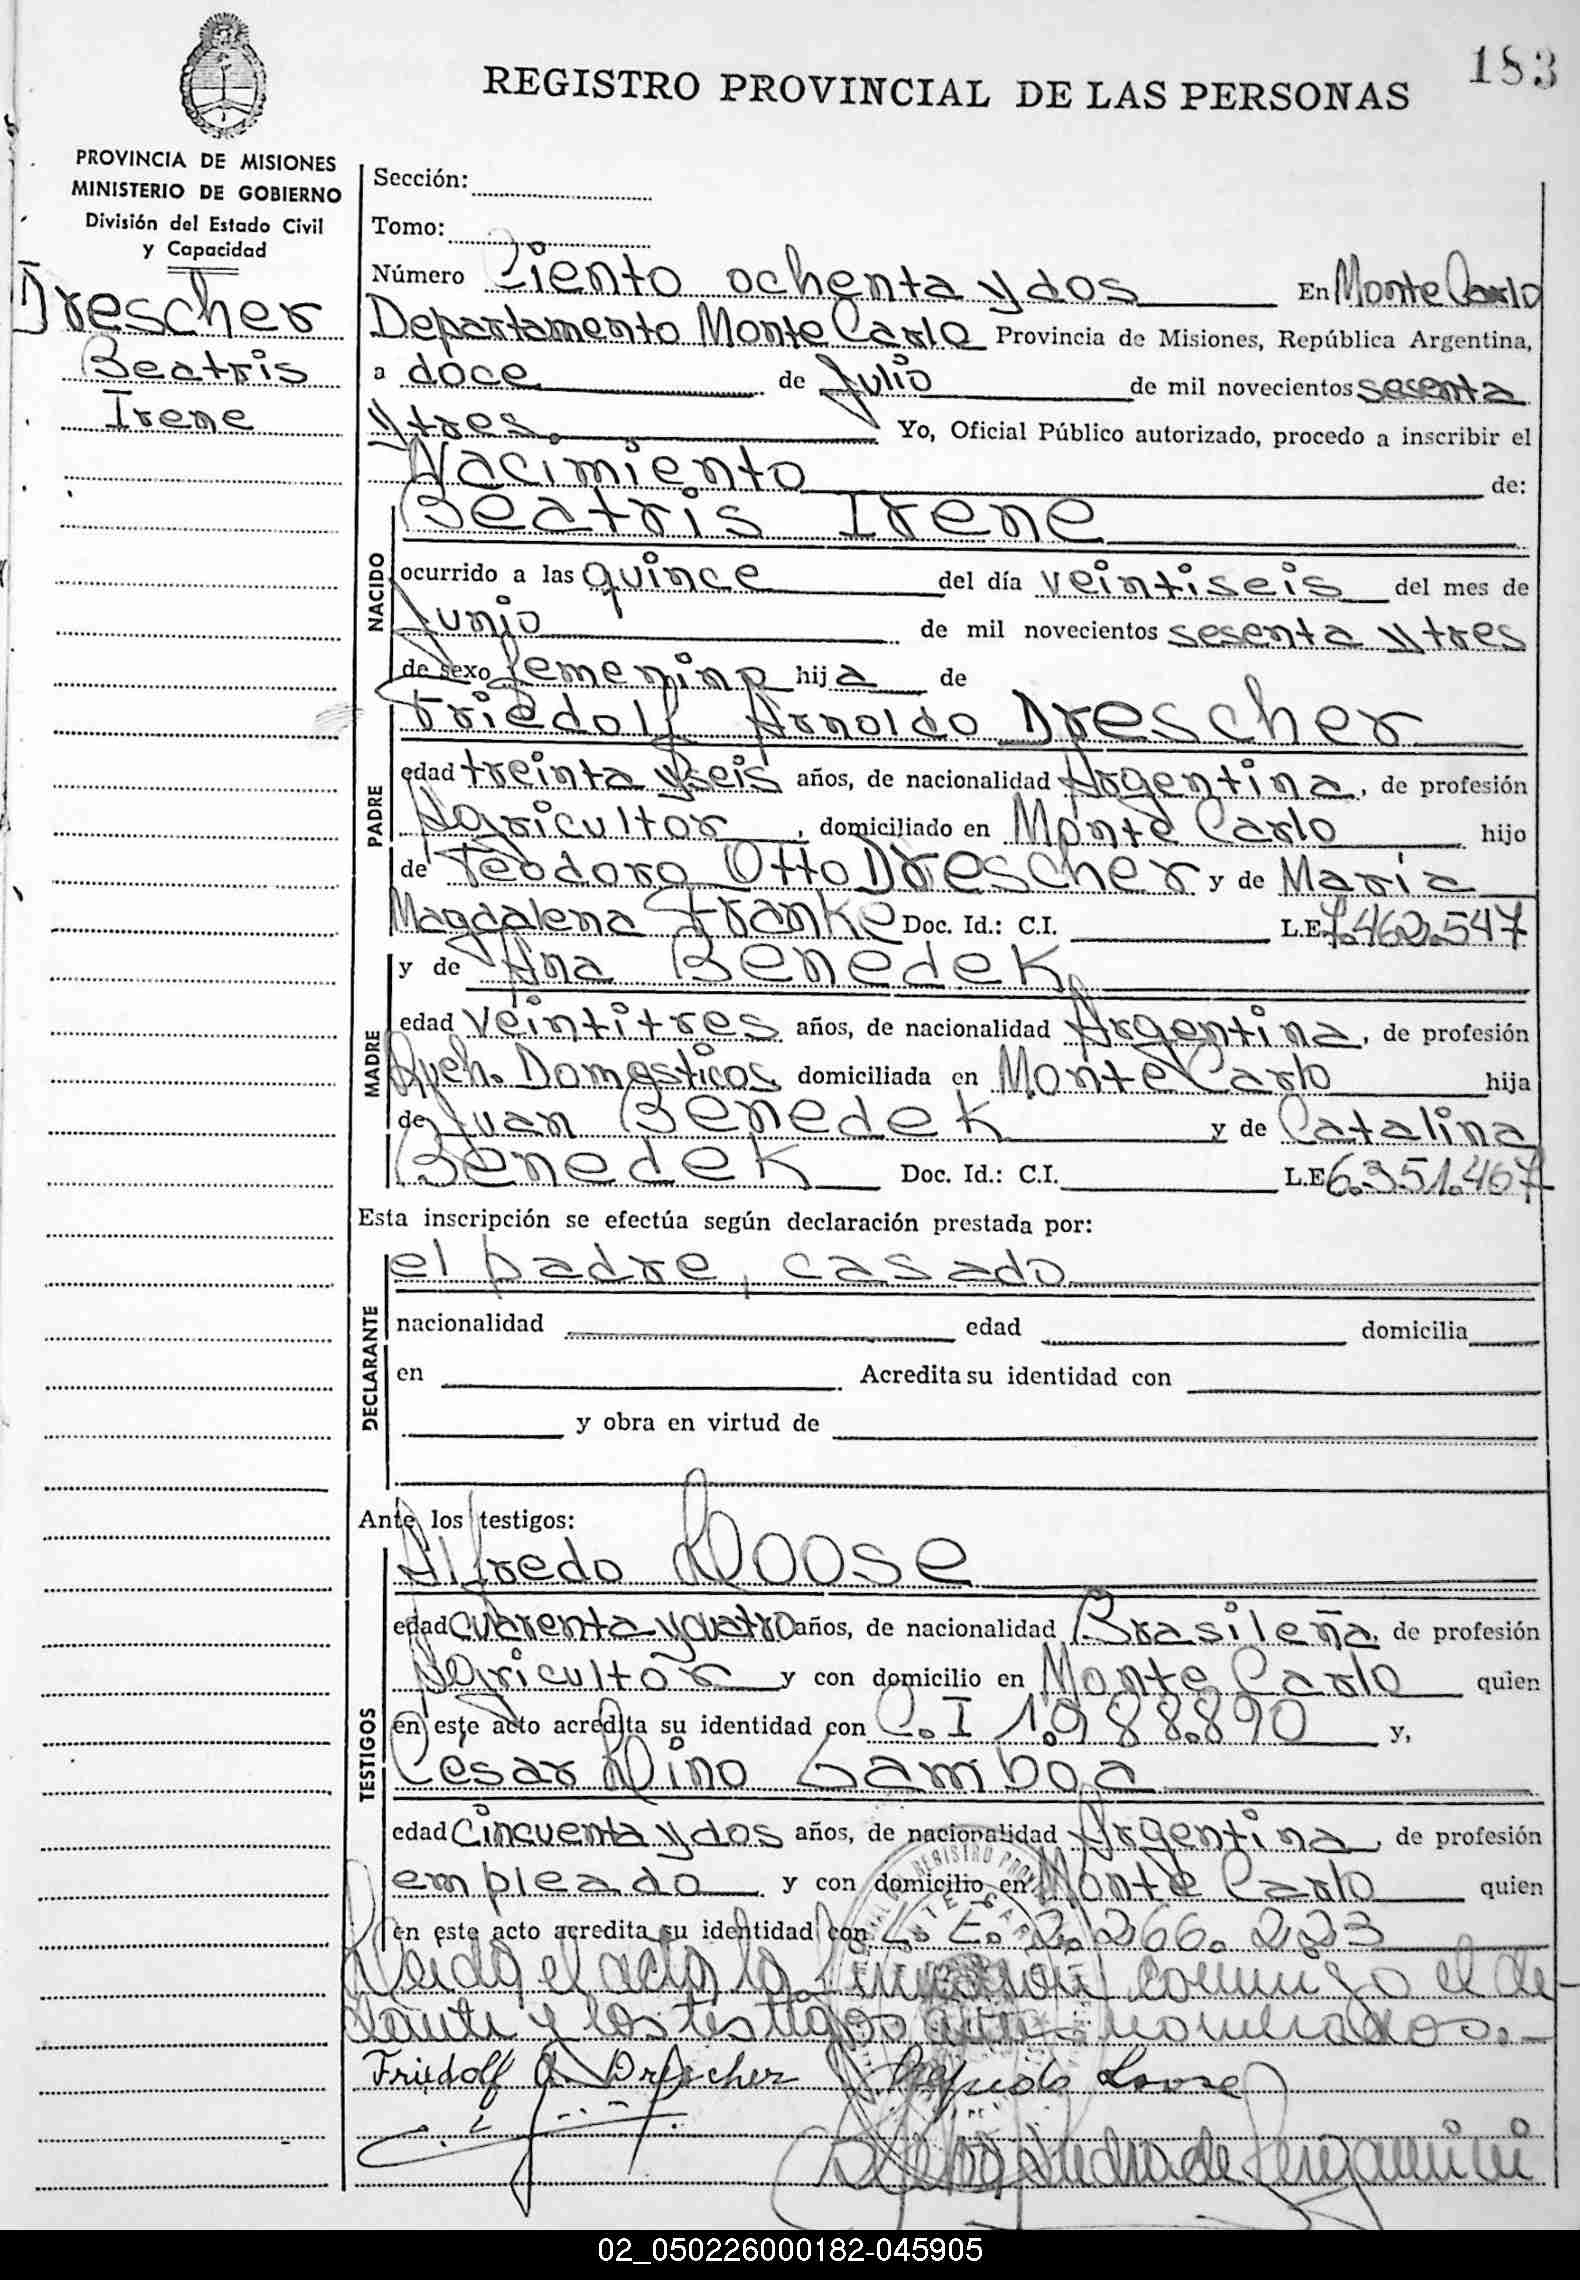 183
REGISTRO PROVINCIAL DE LAS PERSONAS
PROVINCIA DE MISIONES
MINISTERIO DE GOBIERNO
División del Estado Civil
y Capacidad
Drescher
Beatris
Irene
Sección:
Tomo:
Número Ciento ochenta y dos En Monte Carlo
Departamento Monte Carlo Provincia de Misiones, República Argentina,
a doce de Julio de mil novecientos sesenta
y tres. Yo, Oficial Público autorizado, procedo a inscribir el
Nacimiento de:
NACIDO
Beatris Irene
ocurrido a las quince del día veintiseis del mes de
Junio de mil novecientos sesenta y tres
de sexo femenino hija de
PADRE
Friedolf Arnoldo Drescher
edad treinta y seis años, de nacionalidad Argentina, de profesión
Agricultor, domiciliado en Monte Carlo hijo
de Teodoro Otto Drescher y de Maria
Magdalena Franke Doc. Id.: C.I. L.E. 7.462.547
MADRE
y de Ana Benedek
edad veintitres años, de nacionalidad Argentina, de profesión
Queh. Domesticos domiciliada en Monte Carlo hija
de Juan Benedek y de Catalina
Benedek Doc. Id.: C.I. L.E 6.351.467
Esta inscripción se efectúa según declaración prestada por:
DECLARANTE
el padre, casado
nacionalidad edad domicilia
en Acredita su identidad con
y obra en virtud de
Ante los testigos:
TESTIGOS
Alfredo Loose
edad cuarenta y cuatro años, de nacionalidad Brasileña, de profesión
Agricultor y con domicilio en Monte Carlo quien
en este acto acredita su identidad con C.I 1.988.890 y,
Cesar Lino Gamboa
edad Cincuenta y dos años, de nacionalidad Argentina, de profesión
empleado y con domicilio en Monte Carlo quien
en este acto acredita su identidad con L.E. 2.266.223
Leida el acta la firmaron conmigo el de-
clarante y los testigos nombrados.-
Friedolf A. Drescher Alfredo Loose
02_050226000182-045905